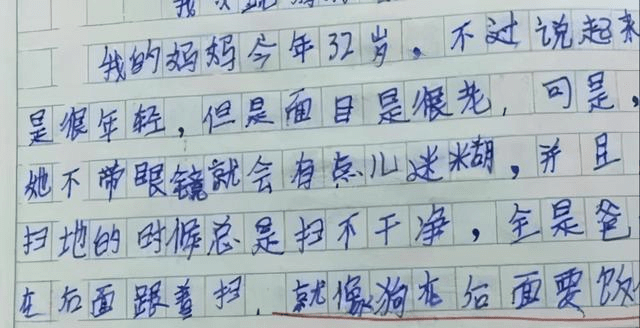 我的妈妈今年32岁，不过说起来
是很年轻，但是面目是很老，可是，
她不带眼镜就会有点儿迷糊，并且
扫地的时候总是扫不干净，全是爸
在后面跟着扫，就像狗在后面要饭